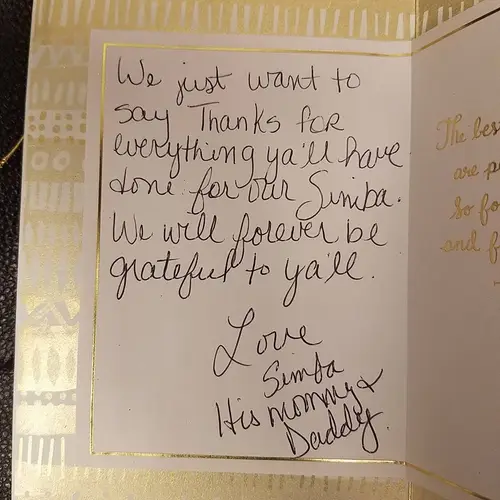 We just want to
say Thanks for
everything ya'll have
done for our Simba.
We will forever be
grateful to ya'll.
Love
Simba
His mommy &
Daddy
The bes
are p
So fo
and f